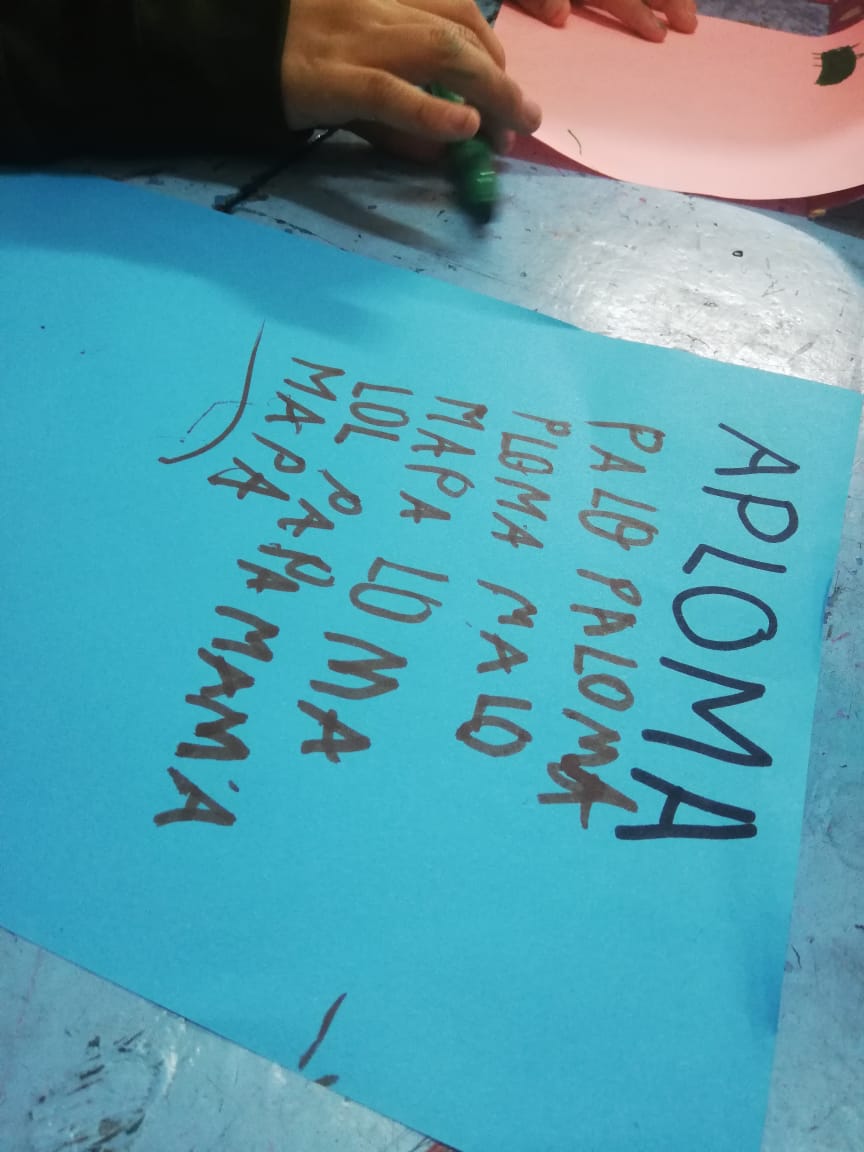 APLOMA
PALO PALOMA
PLOMA MALO
MAPA LOMA
LOL PAPA MAMÁ
MAPA